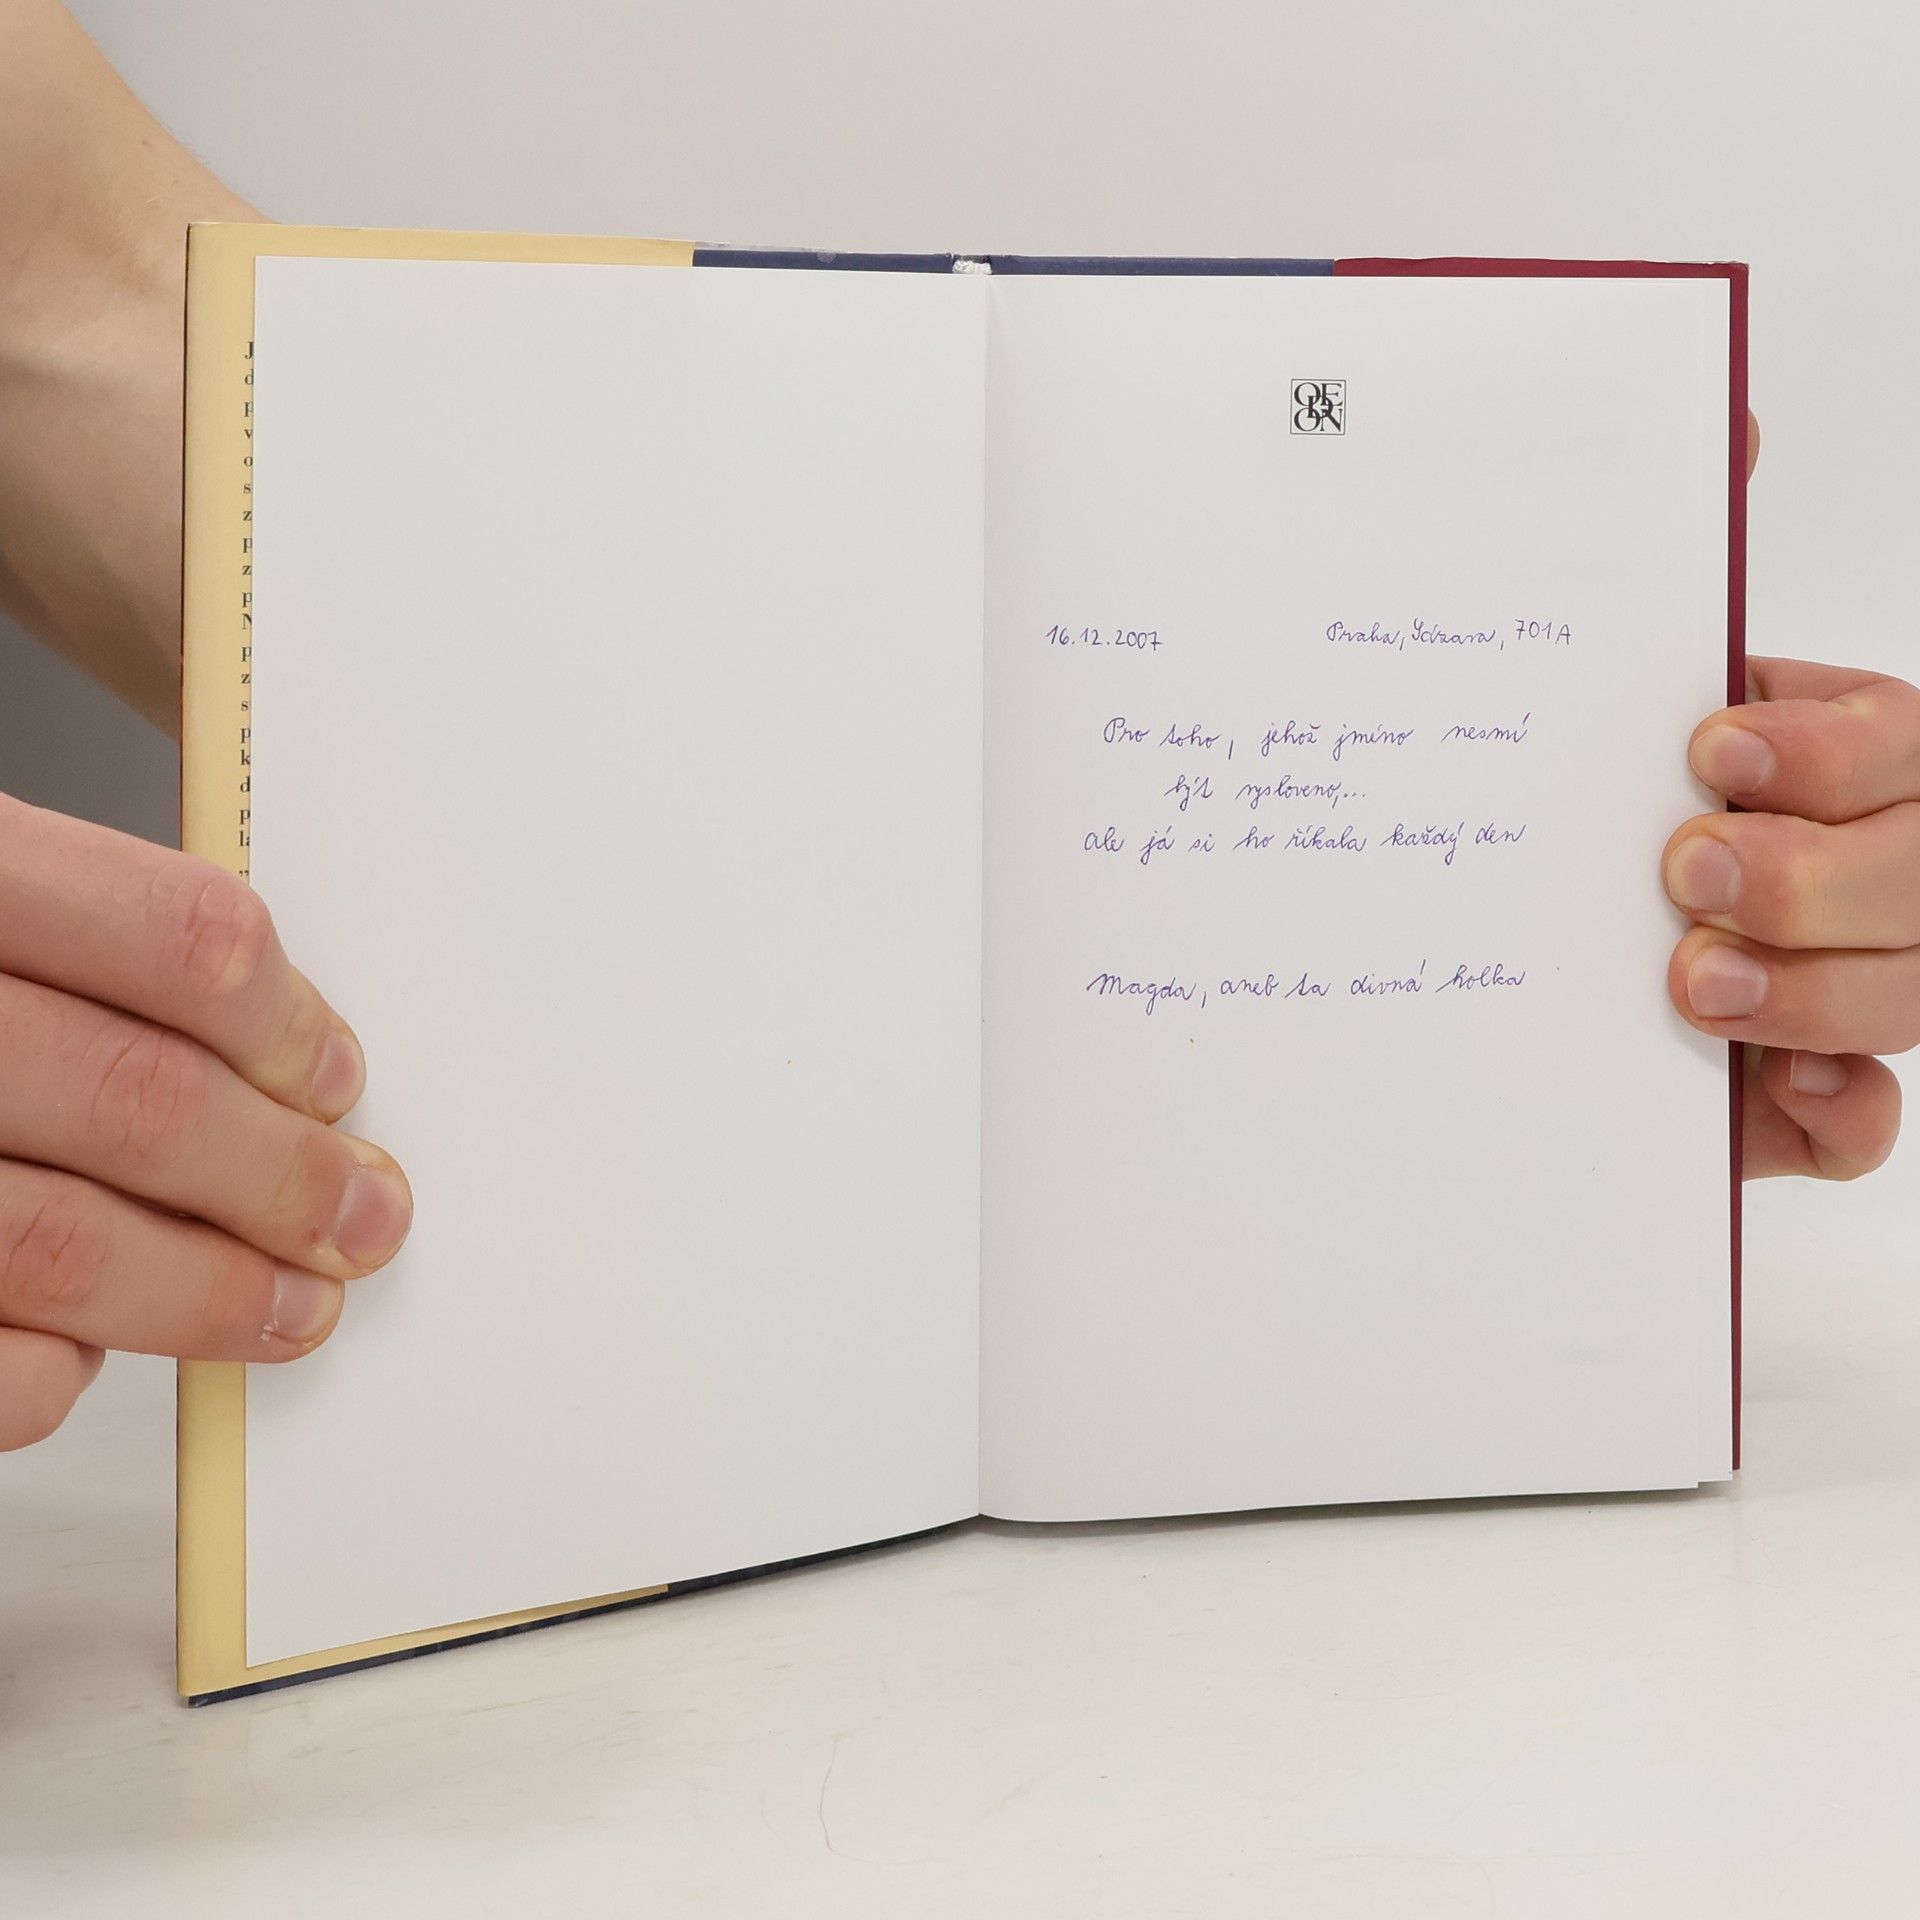 J
d
p
v
o
s
z
p
z
p
N
p
z
s
p
k
d
p
la
„
ODEON
16.12.2007 Praha, 701A
Pro toho, jehož jméno nesmí
být vysloveno,...
ale já si ho říkala každý den
Magda, aneb ta divná holka